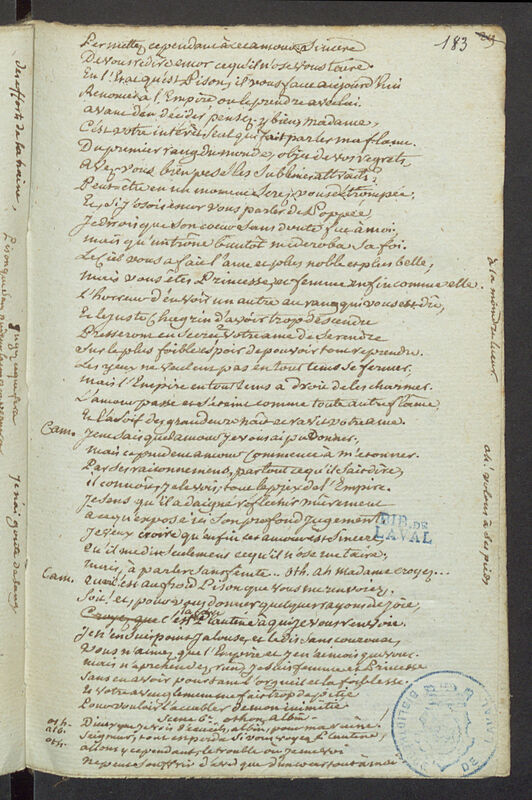 183
Permettez cependant à cet amour Sincère
De vous redire encor ce qu'il n'ose vous taire
En l'état qu'est Pison, il vous faut aujourd'hui
Renoncer à l'Empire ou le prendre avec lui.
avant d'en décider pensez-y bien, madame,
C'est votre intérêt seul qui fait parler ma flame.
Du premier rang du monde, objet de vos regrets,
Avez vous bien pesé les Sublimes attraits?
Peut-être en un moment serez vous détrompée,
Et si j'osois encor vous parler de Poppée,
Je dirois que Son coeur Sans doute fut à moi,
mais qu'un trône bientôt me déroba Sa foi.
Le Ciel vous a fait l'ame et plus noble et plus belle,
Mais vous êtes Princesse, et femme enfin comme elle.
L'horreur d'en voir un autre au rang qui vous est dû,
Et le juste Chagrin d'avoir trop descendu
Presseront en Secret votre ame de Se rendre
Sur le plus foible espoir de pouvoir tout reprendre.
Les yeux ne veulent pas en tout tems Se fermer,
mais l'Empire en tout tems a droit de les charmer.
L'amour passe et S'éteint comme toute autre flame
Et la Soif des grandeurs
Cam. Je ne Sais quel amour je vous ai pu donner,
mais cependant amour commence à m'étonner.
Par Ses raisonnemens, partout ce qu'il Sait dire,
il connoît, je le vois, tout le prix de l'Empire.
Je Sens qu'il a daigné réfléchir mûrement
à ce qu'expose ici Son profond jugement
Je veux croire qu'enfin cet amour est Sincère
Qu'il me dit Seulement ce qu'il n'ose me taire,
mais, à parler Sans feinte... oth. Ah madame croyez...
Cam. Pison que vous me renvoyez,
Soit! et, pour vous donner quelques rayons de joie,
Croyez que c'est à Plautine à qui je vous renvoie.
Je n'en Suis point jalouse, et le dis Sans courroux,
Vous n'aimez que l'Empire et je n'aimois que vous.
mais n'appréhendez rien, je Suis femme et Princesse
Sans en avoir pourtant l'orgueil et la foiblesse.
Et votre aveuglement me fait trop de pitié
Pour vouloir l'accabler de mon inimitié
Scene 6e othon, albin
oth. Dieux que je vois d'écueils, albin, pour ma ruine!
alb. Seigneur, tout est perdu Si vous voyez Plautine,
oth. allons-y cependant, le trouble où je me voi
ne peut Souffrir d'avis que d'un coeur tout à moi
à la moindre lueur
ah! volons à Ses pieds
des efforts de la haine,
BIB. DE
LAVAL